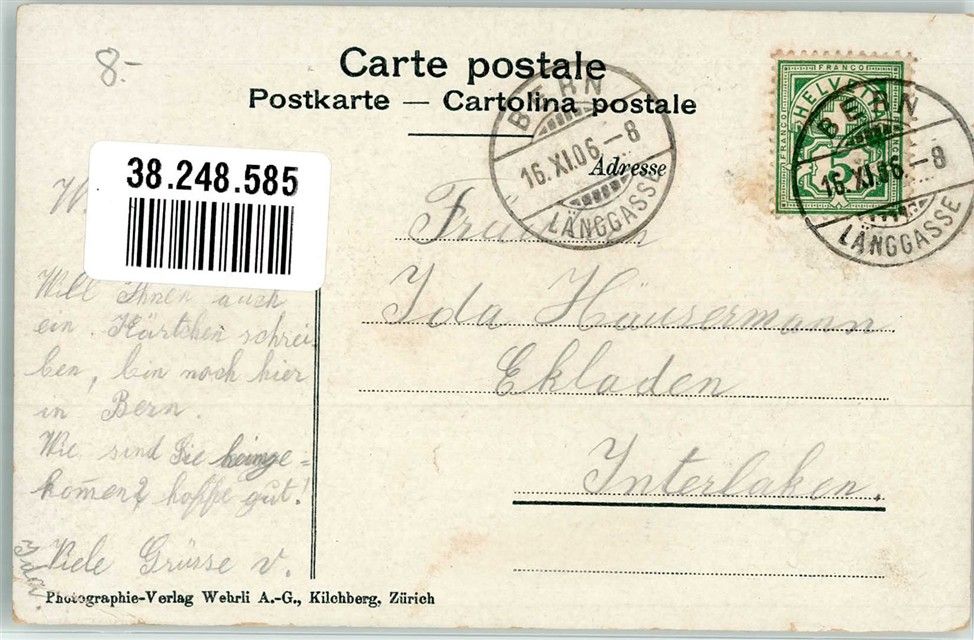 8.-
Carte postale
Postkarte — Cartolina postale
Adresse
BERN
16.XI.06.-8
LÄNGGASSE
FRANCO
HELVETIA
FRANCO
FRANCO
5
BERN
16.XI.06.-8
LÄNGGASSE
38.248.585
Will Ihnen auch
ein Kärtchen schrei
ben, bin noch hier
in Bern.
Wie sind Sie heimge=
kom̅en? hoffe gut!
Viele Grüsse v.
Ida.
Ida Häusermann
Ekladen
Interlaken.
Photographie-Verlag Wehrli A.-G., Kilchberg, Zürich